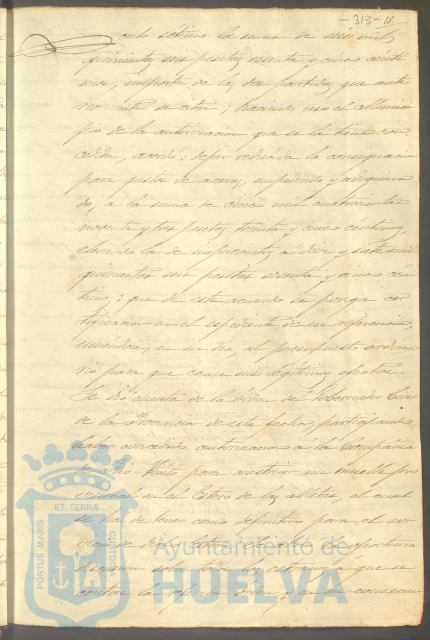 -313- 18.
culo sétimo la suma de seis mil
quinientas seis pesetas sesenta y cinco cénti
mos, importe de las dos partidas que ante
riormente se citan; haciendo uso el Munici
pio de la autorizacion que se le tiene con
cedida, acordó: dejar reducida la consignacion
para gastos de aceras, empedrados y adoquina
do, a la suma de cinco mil cuatrocientas
noventa y tres pesetas treinta y cinco céntimos,
elevando la de imprevistos a diez y siete mil
quinientas seis pesetas sesenta y cinco cén
timos; que de este acuerdo se ponga cer
tificacion en el espediente de su referencia,
uniéndose, en su dia, al presupuesto ordina
rio para que cause sus legítimos efectos.
Se dió cuenta de la órden del Gobernador Civil
de la Provincia de esta fecha, participando
haber concedido autorizacion á la Compañia
de Rio Tinto para construir un muelle pro
visional en el Estero de las Metas, el cual
se ha de tener como definitivo para el ser
la oportuna
que se
la órden y en su consecuen
PORTUS MARIS ET TERRÆ CUSTODIO
Ayuntamiento de
HUELVA